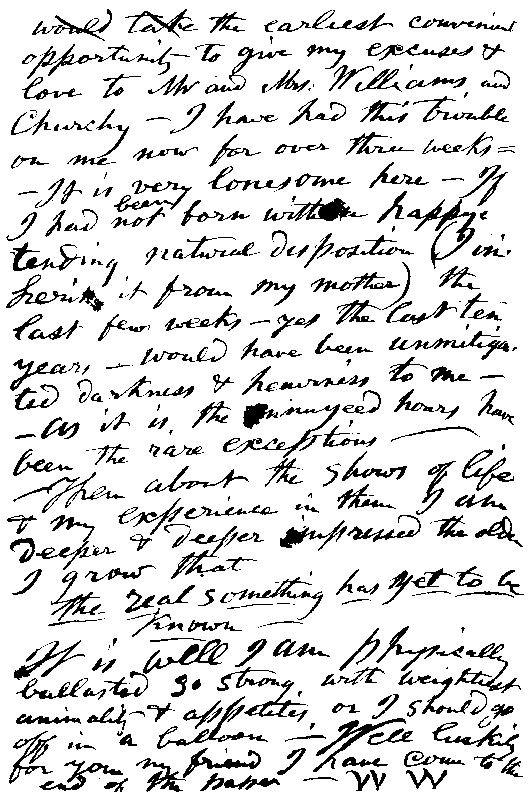 would take the earliest convenient
opportunity to give my excuses &
love to Mr and Mrs. Williams, and
Churchy — I have had this trouble
on me now for over three weeks =
— It is very lonesome here — If
been
I had not born with a happy
tending natural disposition (I in-
herit it from my mother) the
last few weeks — yes the last ten
years — would have been unmitiga-
ted darkness & heaviness to me —
— as it is, the ennuyeed hours have
been the rare exceptions —
— Then about the shows of life
& my experience in them I am
deeper & deeper impressed the older
I grow that
the real something has yet to be
known
It is well I am physically
ballasted so strong with weightiest
animality & appetites, or I should go
off in a balloon — Well luckily
for you my friend I have come to the
end of the paper — W W